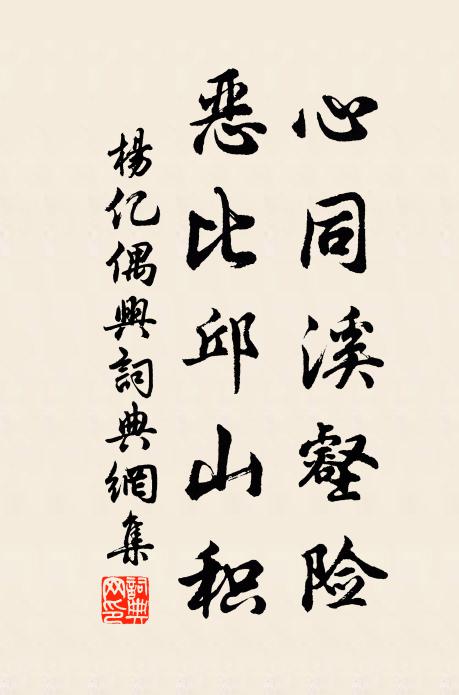 心同溪壑险
恶比邱山积
楊亿偶興詞典網集
詞典
网印